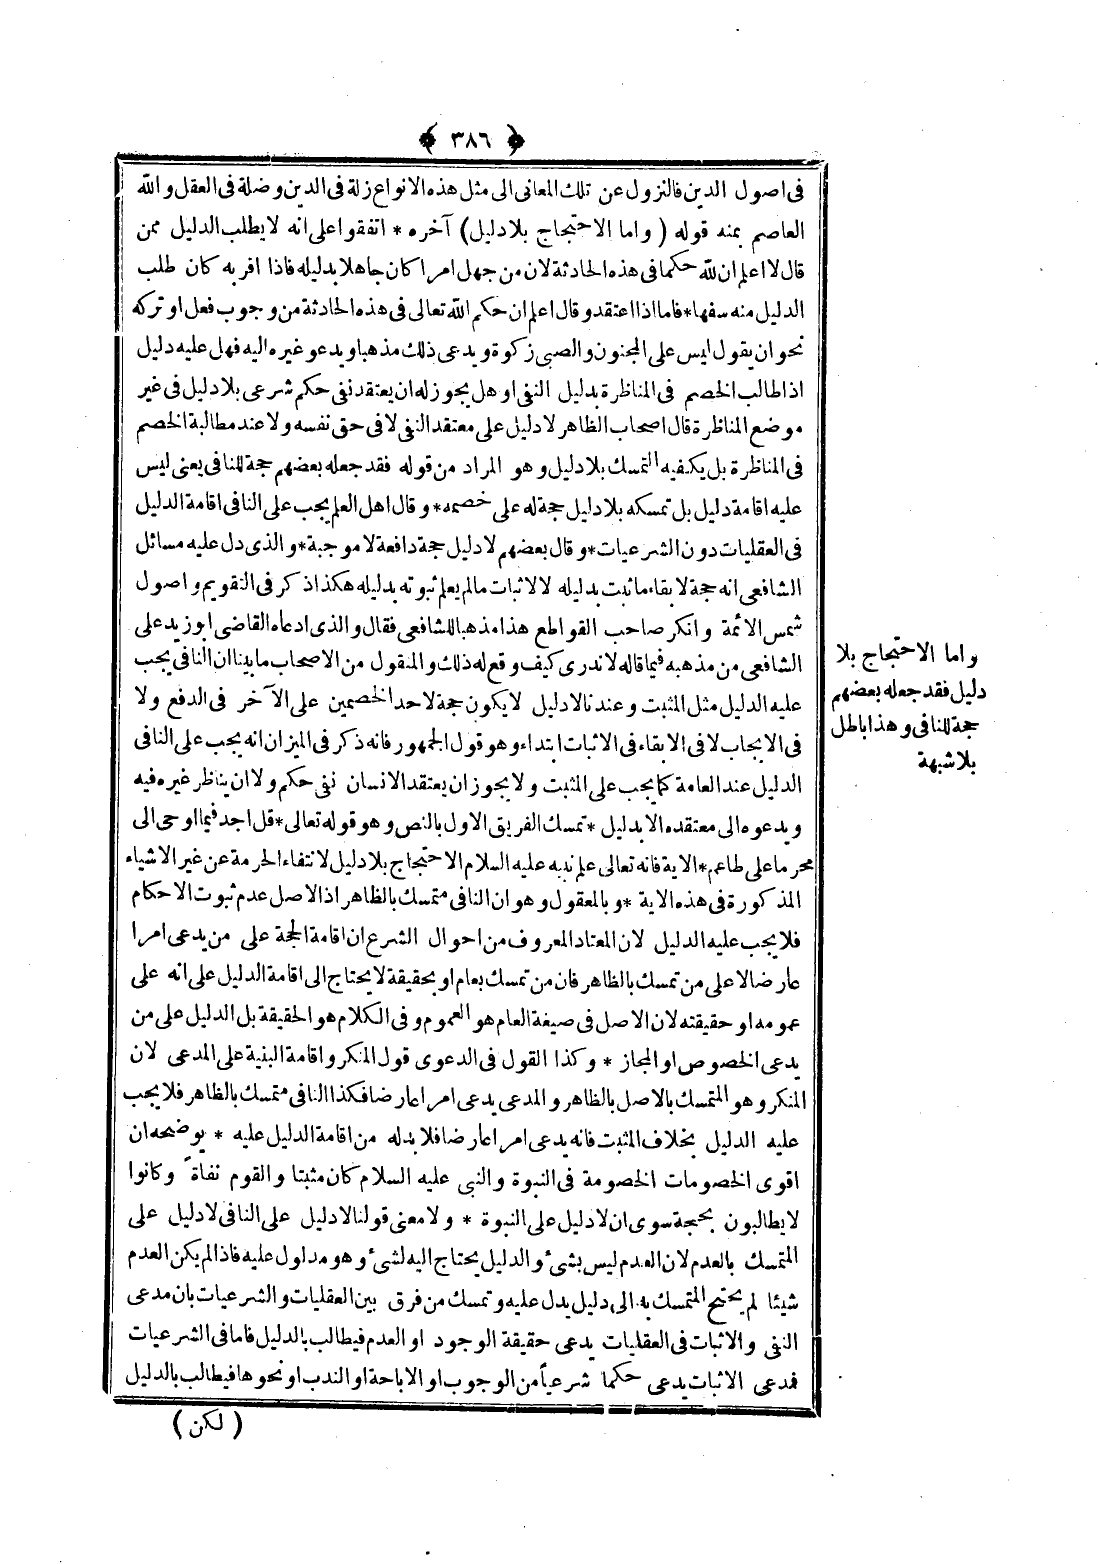 ﴿ ٣٨٦ ﴾
فى اصول الدين فالنزول عن تلك المعانى الى مثل هذه الانواع زلة فى الدين وضلة فى العقل والله
العاصم بمنه قوله ( واما الاحتجاج بلادليل) آخره * اتفقوا على انه لايطلب الدليل ممن
قال لا اعلم ان لله حكما فى هذه الحادثة لان من جهل امرا كان جاهلا بدليله فاذا اقر به كان طلب
الدليل منه سفها * فاما اذا اعتقد وقال اعلم ان حكم الله تعالى فى هذه الحادثة من وجوب فعل او تركه
نحو ان يقول ليس على المجنون والصبى زكوة ويدعى ذلك مذهبا ويدعو غيره اليه فهل عليه دليل
اذا طالب الخصم فى المناظرة بدليل النفى او هل يجوز له ان يعتقد نفى حكم شرعى بلادليل فى غير
موضع المناظرة قال اصحاب الظاهر لادليل على معتقد النفى لا فى حق نفسه ولا عند مطالبة الخصم
فى المناظرة بل يكفيه التمسك بلادليل وهو المراد من قوله فقد جعله بعضهم حجة للنافى يعنى ليس
عليه اقامة دليل بل تمسكه بلادليل حجة له على خصمه * وقال اهل العلم يجب على النافى اقامة الدليل
فى العقليات دون الشرعيات * وقال بعضهم لادليل حجة دافعة لا موجبة * والذى دل عليه مسائل
الشافعى انه حجة لابقاء ماثبت بدليله لالاثبات مالم يعلم ثبوته بدليله هكذا ذكر فى التقويم واصول
شمس الائمة وانكر صاحب القواطع هذا مذهبا للشافعى فقال والذى ادعاه القاضى ابوزيد على
الشافعى من مذهبه فيما قاله لاندرى كيف وقع له ذلك والمنقول من الاصحاب مابينا ان النافى يجب
عليه الدليل مثل المثبت وعندنا لادليل لايكون حجة لاحد الخصمين على الآخر فى الدفع ولا
فى الايجاب لا فى الابقاء فى الاثبات ابتداء وهو قول الجمهور فانه ذكر فى الميزان انه يجب على النافى
الدليل عند العامة كما يجب على المثبت ولايجوز ان يعتقد الانسان نفى حكم ولا ان يناظر غيره فيه
ويدعوه الى معتقده الا بدليل * تمسك الفريق الاول بالنص وهو قوله تعالى * قل لا اجد فيما اوحى الى
محرما على طاعم * الاية فانه تعالى علم نبيه عليه السلام الاحتجاج بلادليل لانتفاء الحرمة عن غير الاشياء
المذكورة فى هذه الاية * وبالمعقول وهو ان النافى متمسك بالظاهر اذ الاصل عدم ثبوت الاحكام
فلايجب عليه الدليل لان المعتاد المعروف من احوال الشرع ان اقامة الحجة على من يدعى امرا
عارضا لا على من تمسك بالظاهر فان من تمسك بعام او بحقيقة لايحتاج الى اقامة الدليل على انه على
عمومه او حقيقته لان الاصل فى صيغة العام هو العموم وفى الكلام هو الحقيقة بل الدليل على من
يدعى الخصوص او المجاز * وكذا القول فى الدعوى قول المنكر واقامة البنية على المدعى لان
المنكر وهو المتمسك بالاصل بالظاهر والمدعى يدعى امرا عارضا فكذا النافى متمسك بالظاهر فلايجب
عليه الدليل بخلاف المثبت فانه يدعى امرا عارضا فلابدله من اقامة الدليل عليه * يوضحه ان
اقوى الخصومات الخصومة فى النبوة والنبى عليه السلام كان مثبتا والقوم نفاة وكانوا
لايطالبون بحجة سوى ان لادليل على النبوة * ولامعنى قولنا لادليل على النافى لادليل على
المتمسك بالعدم لان العدم ليس بشئ والدليل يحتاج اليه لشئ وهو مدلول عليه فاذا لم يكن العدم
شيئا لم يحتج المتمسك به الى دليل يدل عليه وتمسك من فرق بين العقليات والشرعيات بان مدعى
النفى والاثبات فى العقليات يدعى حقيقة الوجود او العدم فيطالب بالدليل فاما فى الشرعيات
فمدعى الاثبات يدعى حكما شرعياً من الوجوب او الاباحة او الندب او نحوها فيطالب بالدليل
( لكن )
واما الاحتجاج بلا
دليل فقد جعله بعضهم
حجة للنافى وهذا باطل
بلا شبهة